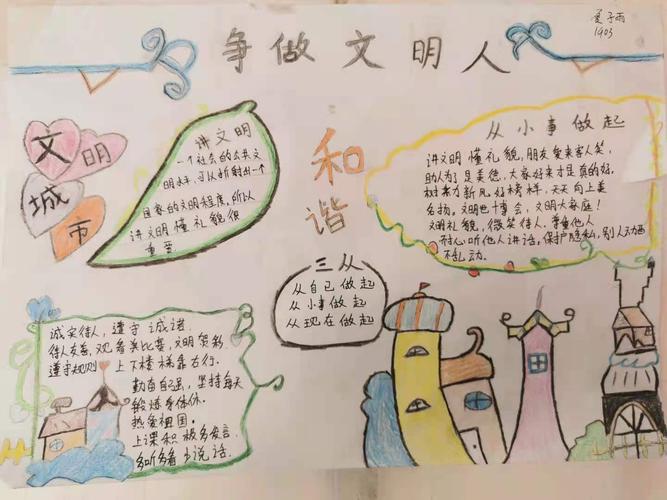 争做文明人
1903
文明
城市
讲文明
一个社会的公共文
明水平,可以折射出一个
国家的文明程度,所以
讲文明懂礼貌很
重要
和
谐
从小事做起
讲文明 懂礼貌,朋友爱来客人笑,
助人为了是美德,大家好来才是真的好。
树本力新风好榜样,天天向上美
名扬。文明也十博会,文明大家庭!
文明礼貌,微笑待人。尊重他人
开心听他人讲话,保护隐私,别人
不乱动。
三从
从自己做起
从小事做起
从现在做起
诚实待人,遵守诺
待人友善,观看类比赛,文明贺彩
遵守规则 上下楼梯靠右行。
勤奋自强,坚持每天
锻炼身体休。
热爱祖国。
上课积极多发言。
多听多看少说话。